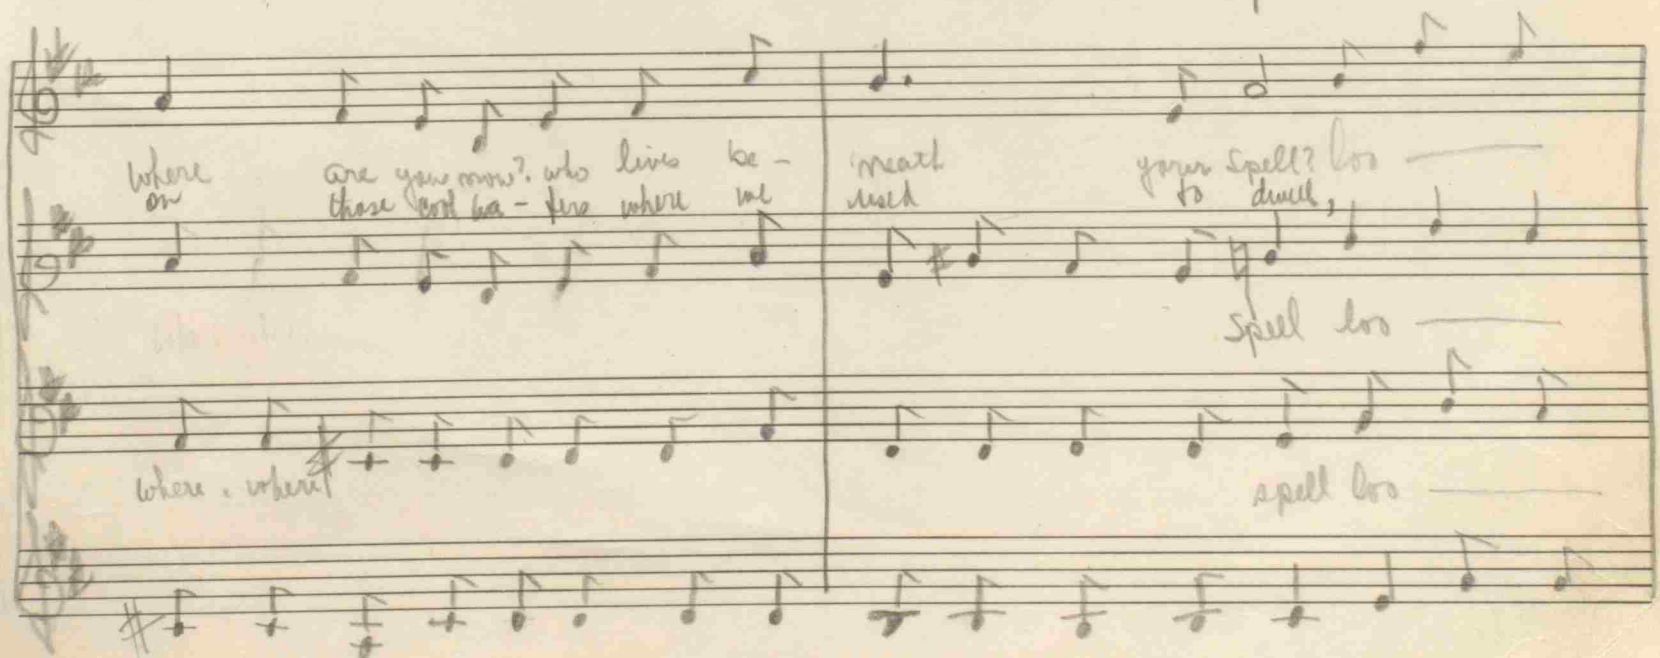 where are you now? who lives be- neath your spell? loo
on those cool wa-ters where we used to dwell,
spell loo
where, where
spell loo